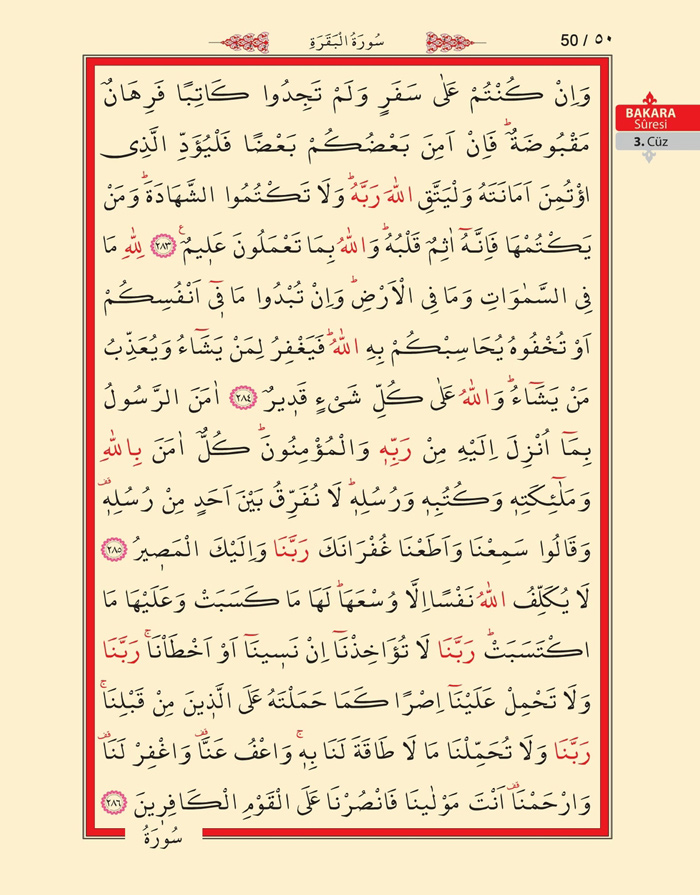 سُورَةُ الْبَقَرَةِ
50 / ٥٠
BAKARA
Sûresi
3. Cüz
وَاِنْ كُنْتُمْ عَلٰى سَفَرٍ وَلَمْ تَجِدُوا كَاتِبًا فَرِهَانٌ
مَقْبُوضَةٌۜ فَاِنْ اَمِنَ بَعْضُكُمْ بَعْضًا فَلْيُؤَدِّ الَّذِى
اؤْتُمِنَ اَمَانَتَهُ وَلْيَتَّقِ اللّٰهَ رَبَّهُۜ وَلَا تَكْتُمُوا الشَّهَادَةَۜ وَمَنْ
يَكْتُمْهَا فَاِنَّهُٓ اٰثِمٌ قَلْبُهُۜ وَاللّٰهُ بِمَا تَعْمَلُونَ عَل۪يمٌ۟ ﴿٢٨٣﴾ لِلّٰهِ مَا
فِى السَّمٰوَاتِ وَمَا فِى الْاَرْضِۜ وَاِنْ تُبْدُوا مَا ف۪ٓى اَنْفُسِكُمْ
اَوْ تُخْفُوهُ يُحَاسِبْكُمْ بِهِ اللّٰهُۜ فَيَغْفِرُ لِمَنْ يَشَٓاءُ وَيُعَذِّبُ
مَنْ يَشَٓاءُۜ وَاللّٰهُ عَلٰى كُلِّ شَىْءٍ قَد۪يرٌ ﴿٢٨٤﴾ اٰمَنَ الرَّسُولُ
بِمَٓا اُنْزِلَ اِلَيْهِ مِنْ رَبِّه۪ وَالْمُؤْمِنُونَۜ كُلٌّ اٰمَنَ بِاللّٰهِ
وَمَلٰٓئِكَتِه۪ وَكُتُبِه۪ وَرُسُلِه۪ۜ لَا نُفَرِّقُ بَيْنَ اَحَدٍ مِنْ رُسُلِه۪۠
وَقَالُوا سَمِعْنَا وَاَطَعْنَا غُفْرَانَكَ رَبَّنَا وَاِلَيْكَ الْمَص۪يرُ ﴿٢٨٥﴾
لَا يُكَلِّفُ اللّٰهُ نَفْسًا اِلَّا وُسْعَهَاۜ لَهَا مَا كَسَبَتْ وَعَلَيْهَا مَا
اكْتَسَبَتْۜ رَبَّنَا لَا تُؤَاخِذْنَٓا اِنْ نَس۪ينَٓا اَوْ اَخْطَاْنَاۚ رَبَّنَا
وَلَا تَحْمِلْ عَلَيْنَٓا اِصْرًا كَمَا حَمَلْتَهُ عَلَى الَّذ۪ينَ مِنْ قَبْلِنَاۚ
رَبَّنَا وَلَا تُحَمِّلْنَا مَا لَا طَاقَةَ لَنَا بِه۪ۚ وَاعْفُ عَنَّا۠ وَاغْفِرْ لَنَا۠
وَارْحَمْنَا۠ اَنْتَ مَوْلٰينَا فَانْصُرْنَا عَلَى الْقَوْمِ الْكَافِر۪ينَ ﴿٢٨٦﴾
سُورَةُ